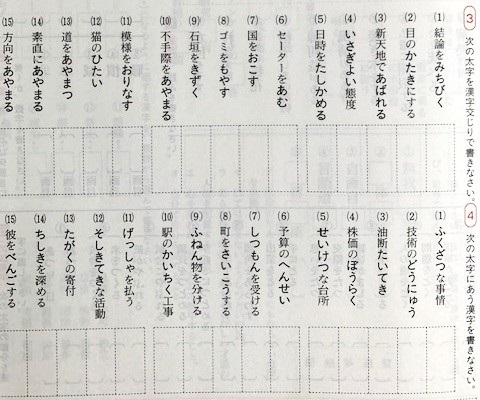 3 次の太字を漢字交じりで書きなさい。
(1) 結論をみちびく
(2) 目のかたきにする
(3) 新天地であばれる
(4) いさぎよい態度
(5) 日時をたしかめる
(6) セーターをあむ
(7) 国をおこす
(8) ゴミをもやす
(9) 石垣をきずく
(10) 不手際をあやまる
(11) 模様をおりなす
(12) 猫のひたい
(13) 道をあやまつ
(14) 素直にあやまる
(15) 方向をあやまる
4 次の太字にあう漢字を書きなさい。
(1) ふくざつな事情
(2) 技術のどうにゅう
(3) 油断たいてき。
(4) 株価のぼうらく
(5) せいけつな台所
(6) 予算のへんせい
(7) しつもんを受ける
(8) 町をさいこうする
(9) ふねん物を分ける
(10) 駅のかいちく工事
(11) げっしゃを払う。
(12) そしきてきな活動
(13) たがくの寄付
(14) ちしきを深める
(15) 彼をべんごする